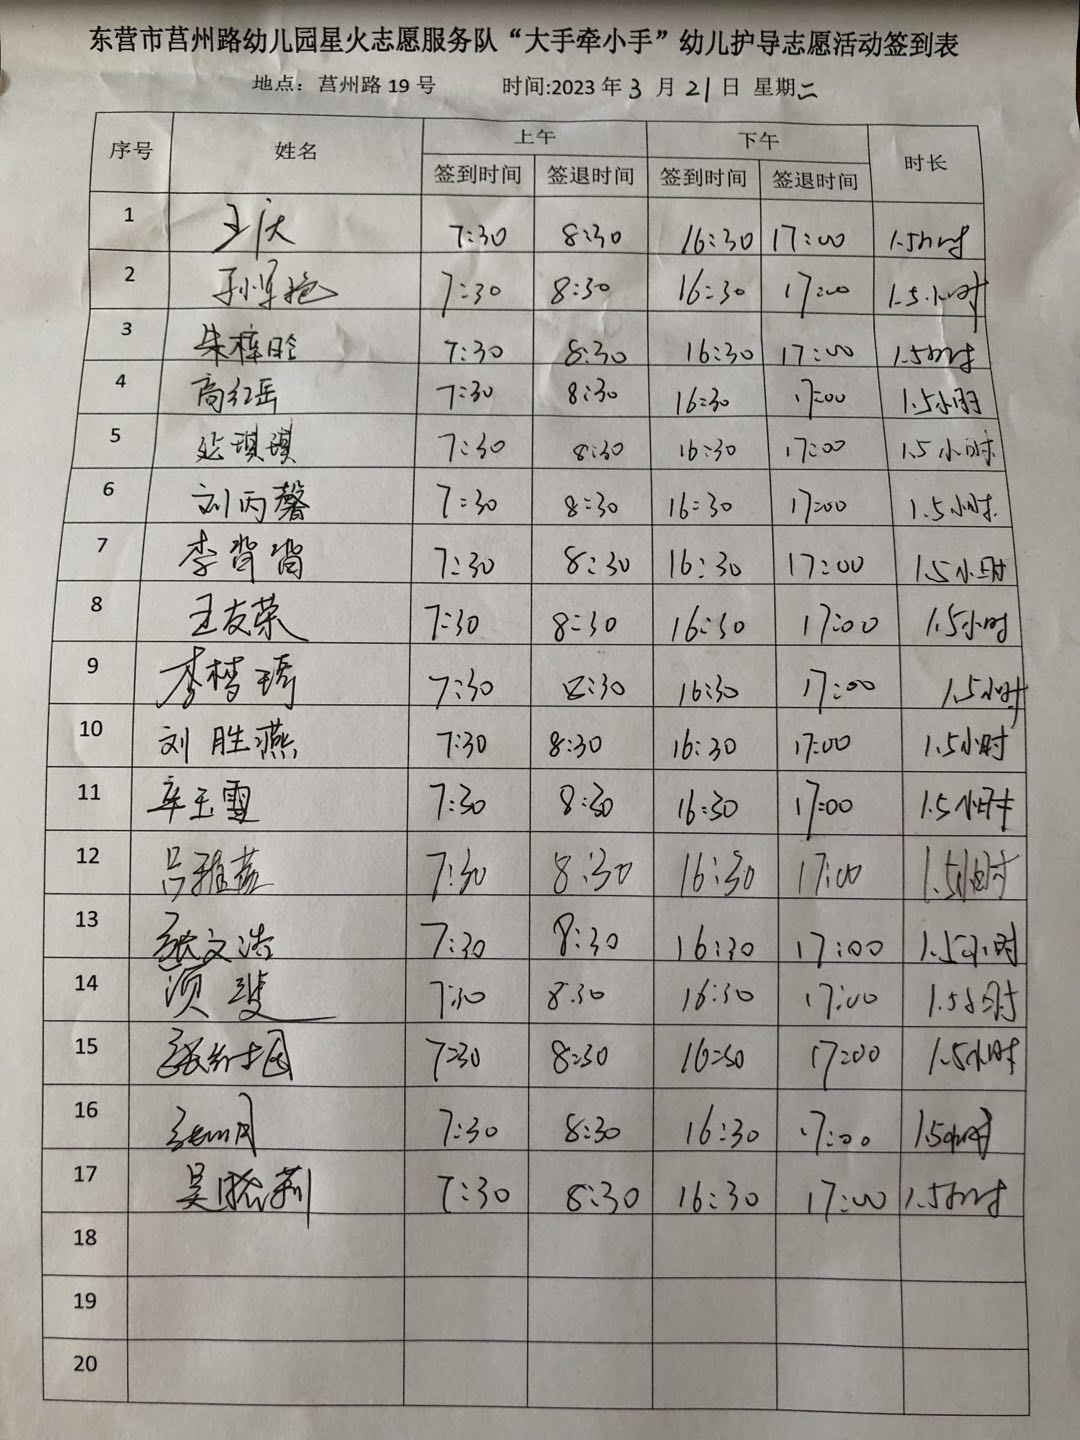 东营市莒州路幼儿园星火志愿服务队“大手牵小手”幼儿护导志愿活动签到表
地点：莒州路 19 号 时间:2023 年 3 月 21 日 星期二
序号 姓名 上午 下午 时长
签到时间 签退时间 签到时间 签退时间
1 王庆 7:30 8:30 16:30 17:00 1.5小时
2 7:30 8:30 16:30 17:00 1.5小时
3 朱梓晗 7:30 8:30 16:30 17:00 1.5小时
4 高红岳 7:30 8:30 16:30 17:00 1.5小时
5 延琪琪 7:30 8:30 16:30 17:00 1.5小时
6 刘丙馨 7:30 8:30 16:30 17:00 1.5小时
7 李 7:30 8:30 16:30 17:00 1.5小时
8 王友荣 7:30 8:30 16:30 17:00 1.5小时
9 李梦琦 7:30 8:30 16:30 17:00 1.5小时
10 刘胜燕 7:30 8:30 16:30 17:00 1.5小时
11 辛玉雪 7:30 8:30 16:30 17:00 1.5小时
12 吕雅 7:30 8:30 16:30 17:00 1.5小时
13 张文浩 7:30 8:30 16:30 17:00 1.5小时
14 7:30 8:30 16:30 17:00 1.5小时
15 7:30 8:30 16:30 17:00 1.5小时
16 7:30 8:30 16:30 17:00 1.5小时
17 吴晓莉 7:30 8:30 16:30 17:00 1.5小时
18
19
20